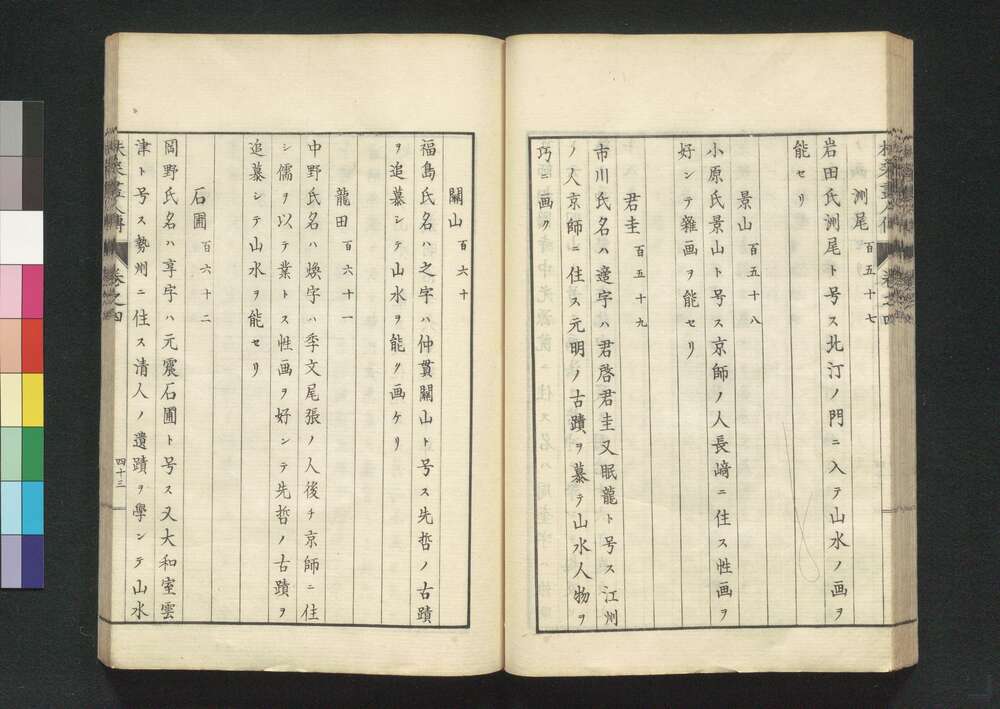 洲尾 百五十七
岩田氏洲尾ト号ス北汀ノ門ニ入テ山水ノ画ヲ
能セリ
景山 百五十八
小原氏景山ト号ス京師ノ人長﨑ニ住ス性画ヲ
好ンテ雜画ヲ能セリ
君圭 百五十九
市川氏名ハ 字ハ君啓君圭又眠龍ト号ス江州
ノ人京師ニ住ス元明ノ古蹟ヲ慕テ山水人物ヲ
巧ニ画ク
關山 百六十
福島氏名ハ之字ハ仲貫關山ト号ス先哲ノ古蹟
ヲ追慕シテ山水ヲ能ク画ケリ
龍田 百六十一
中野氏名ハ煥字ハ季文尾張ノ人後チ京師ニ住
シ儒ヲ以テ業トス性画ヲ好ンテ先哲ノ古蹟ヲ
追慕シテ山水ヲ能セリ
石圃 百六十二
岡野氏名ハ享字ハ元震石圃ト号ス又大和室雲
津ト号ス勢州ニ住ス清人ノ遺蹟ヲ學ンテ山水
卷之四
四十三